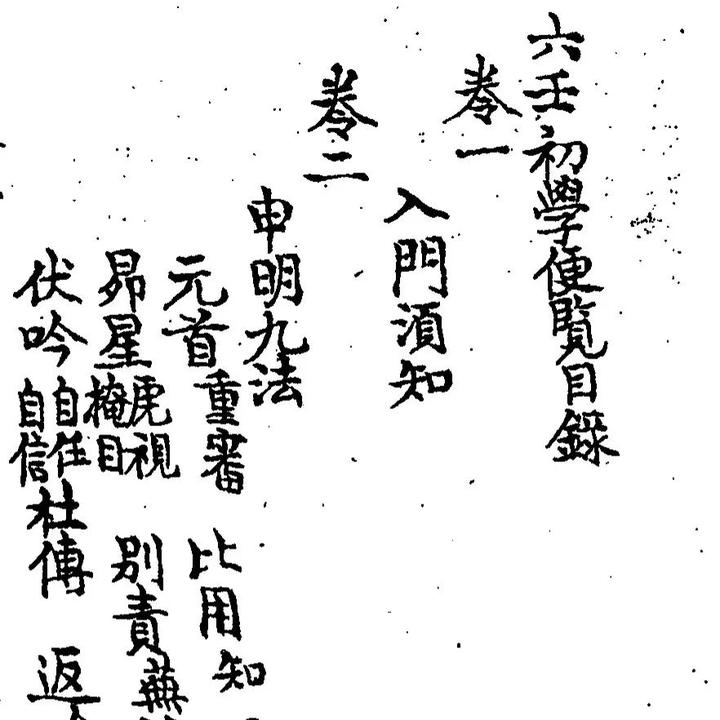 六壬初學便覧目錄
卷一
入門須知
卷二
申明九法
元首 重審 比用 知
昴星 虎視 掩目 別責 蕪
伏吟 自任 自信 杜傳 返